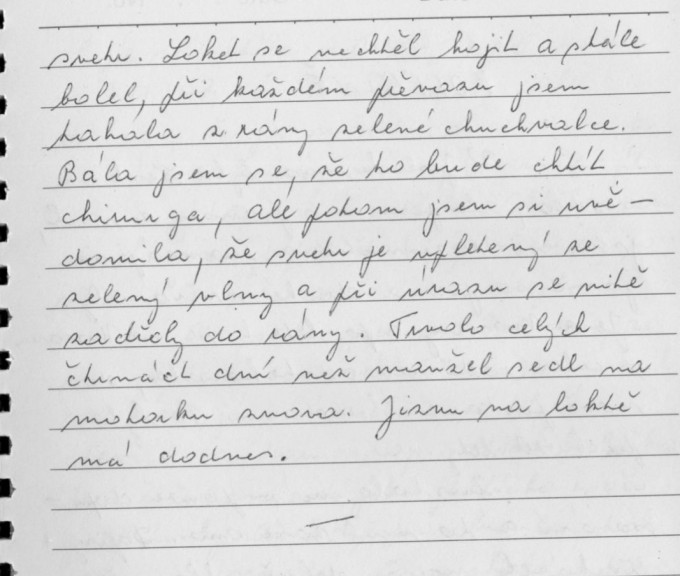 svetr. Loket se nechtěl hojit a stále
bolel, při každém převazu jsem
tahala z rány zelené chuchvalce.
Bála jsem se, že to bude chtít
chirurga, ale potom jsem si uvě-
domila, že svetr je upletený ze
zelený vlny a při úrazu se nitě
zadřely do rány. Trvalo celých
čtrnáct dní než manžel sedl na
motorku znova. Jizvu na loktě
má dodnes.